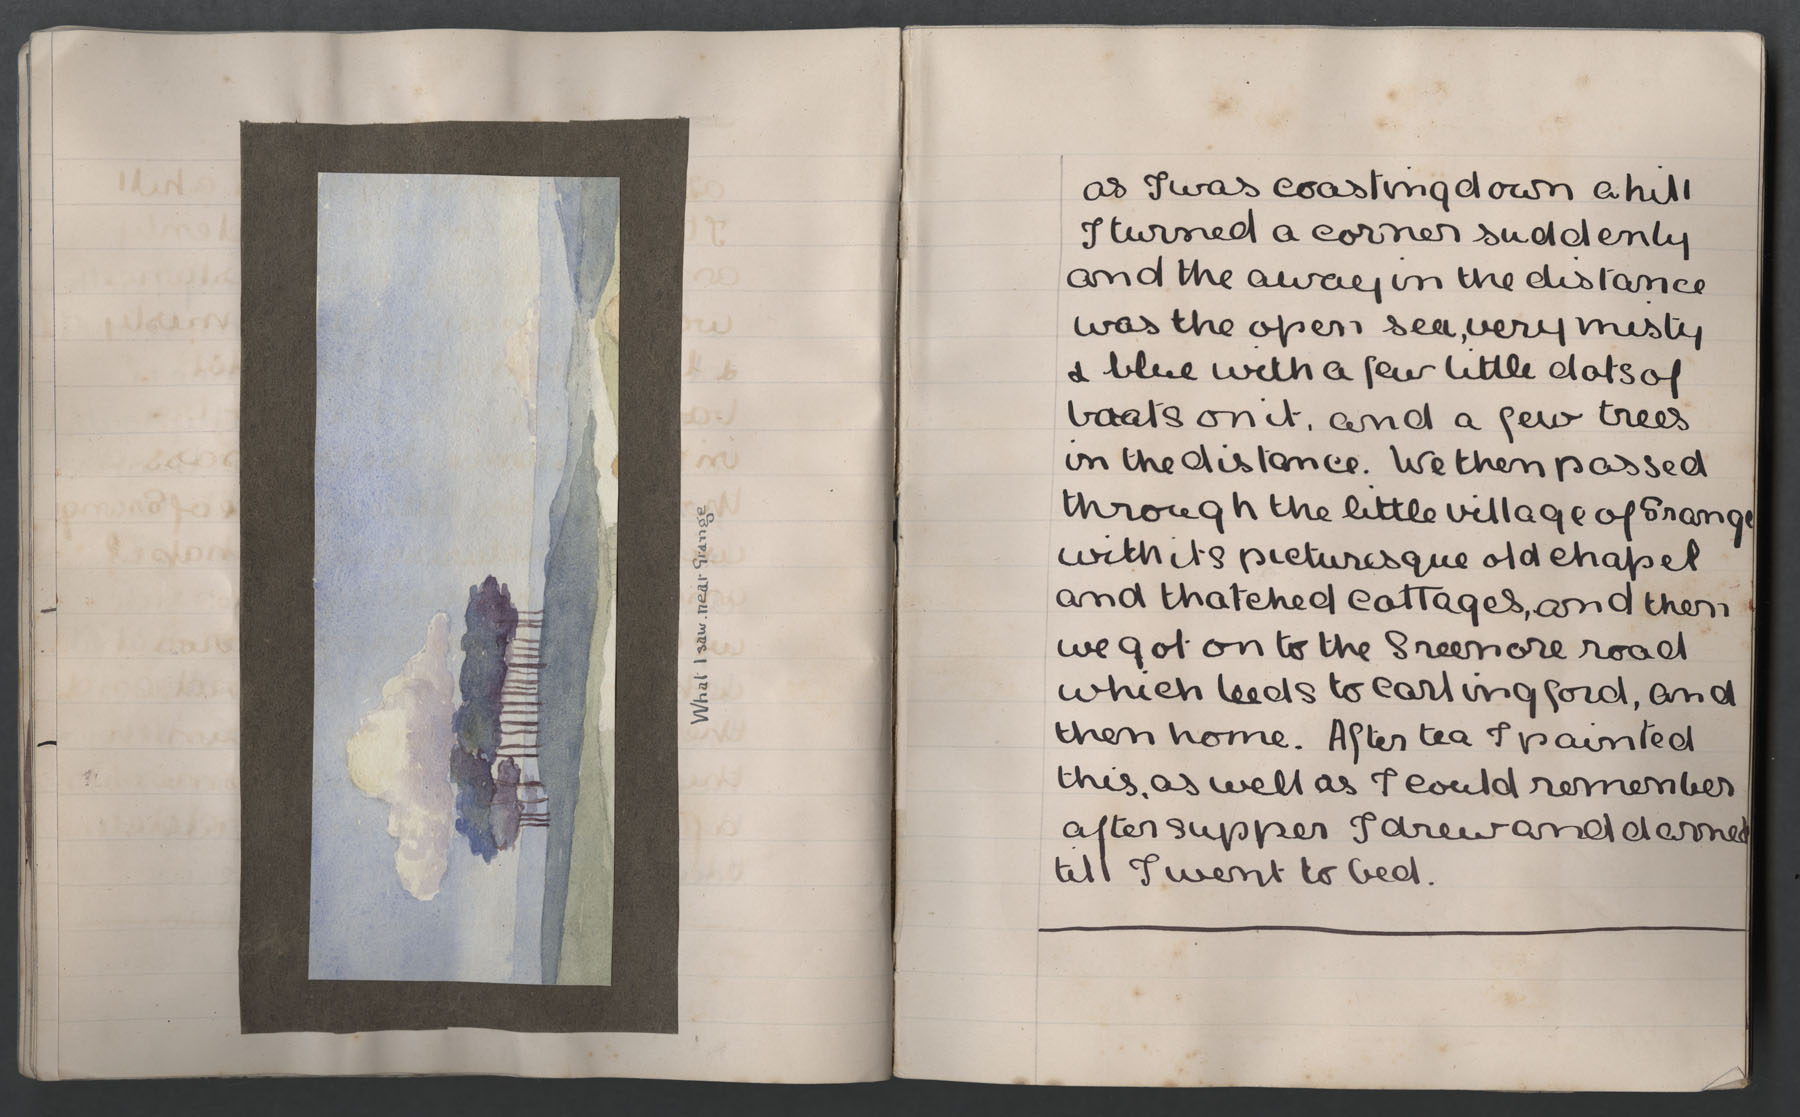 What I saw. near Grange
as I was coasting down a hill
I turned a corner suddenly
and the away in the distance
was the open sea, very misty
& blue with a few little dots of
boats on it, and a few trees
in the distance. We then passed
through the little village of Grange
with its picturesque old chapel
and thatched cottages, and then
we got on to the Greenore road
which leeds to Carlingford, and
then home. After tea I painted
this, as well as I could remember
after supper I drew and darned
till I went to bed.